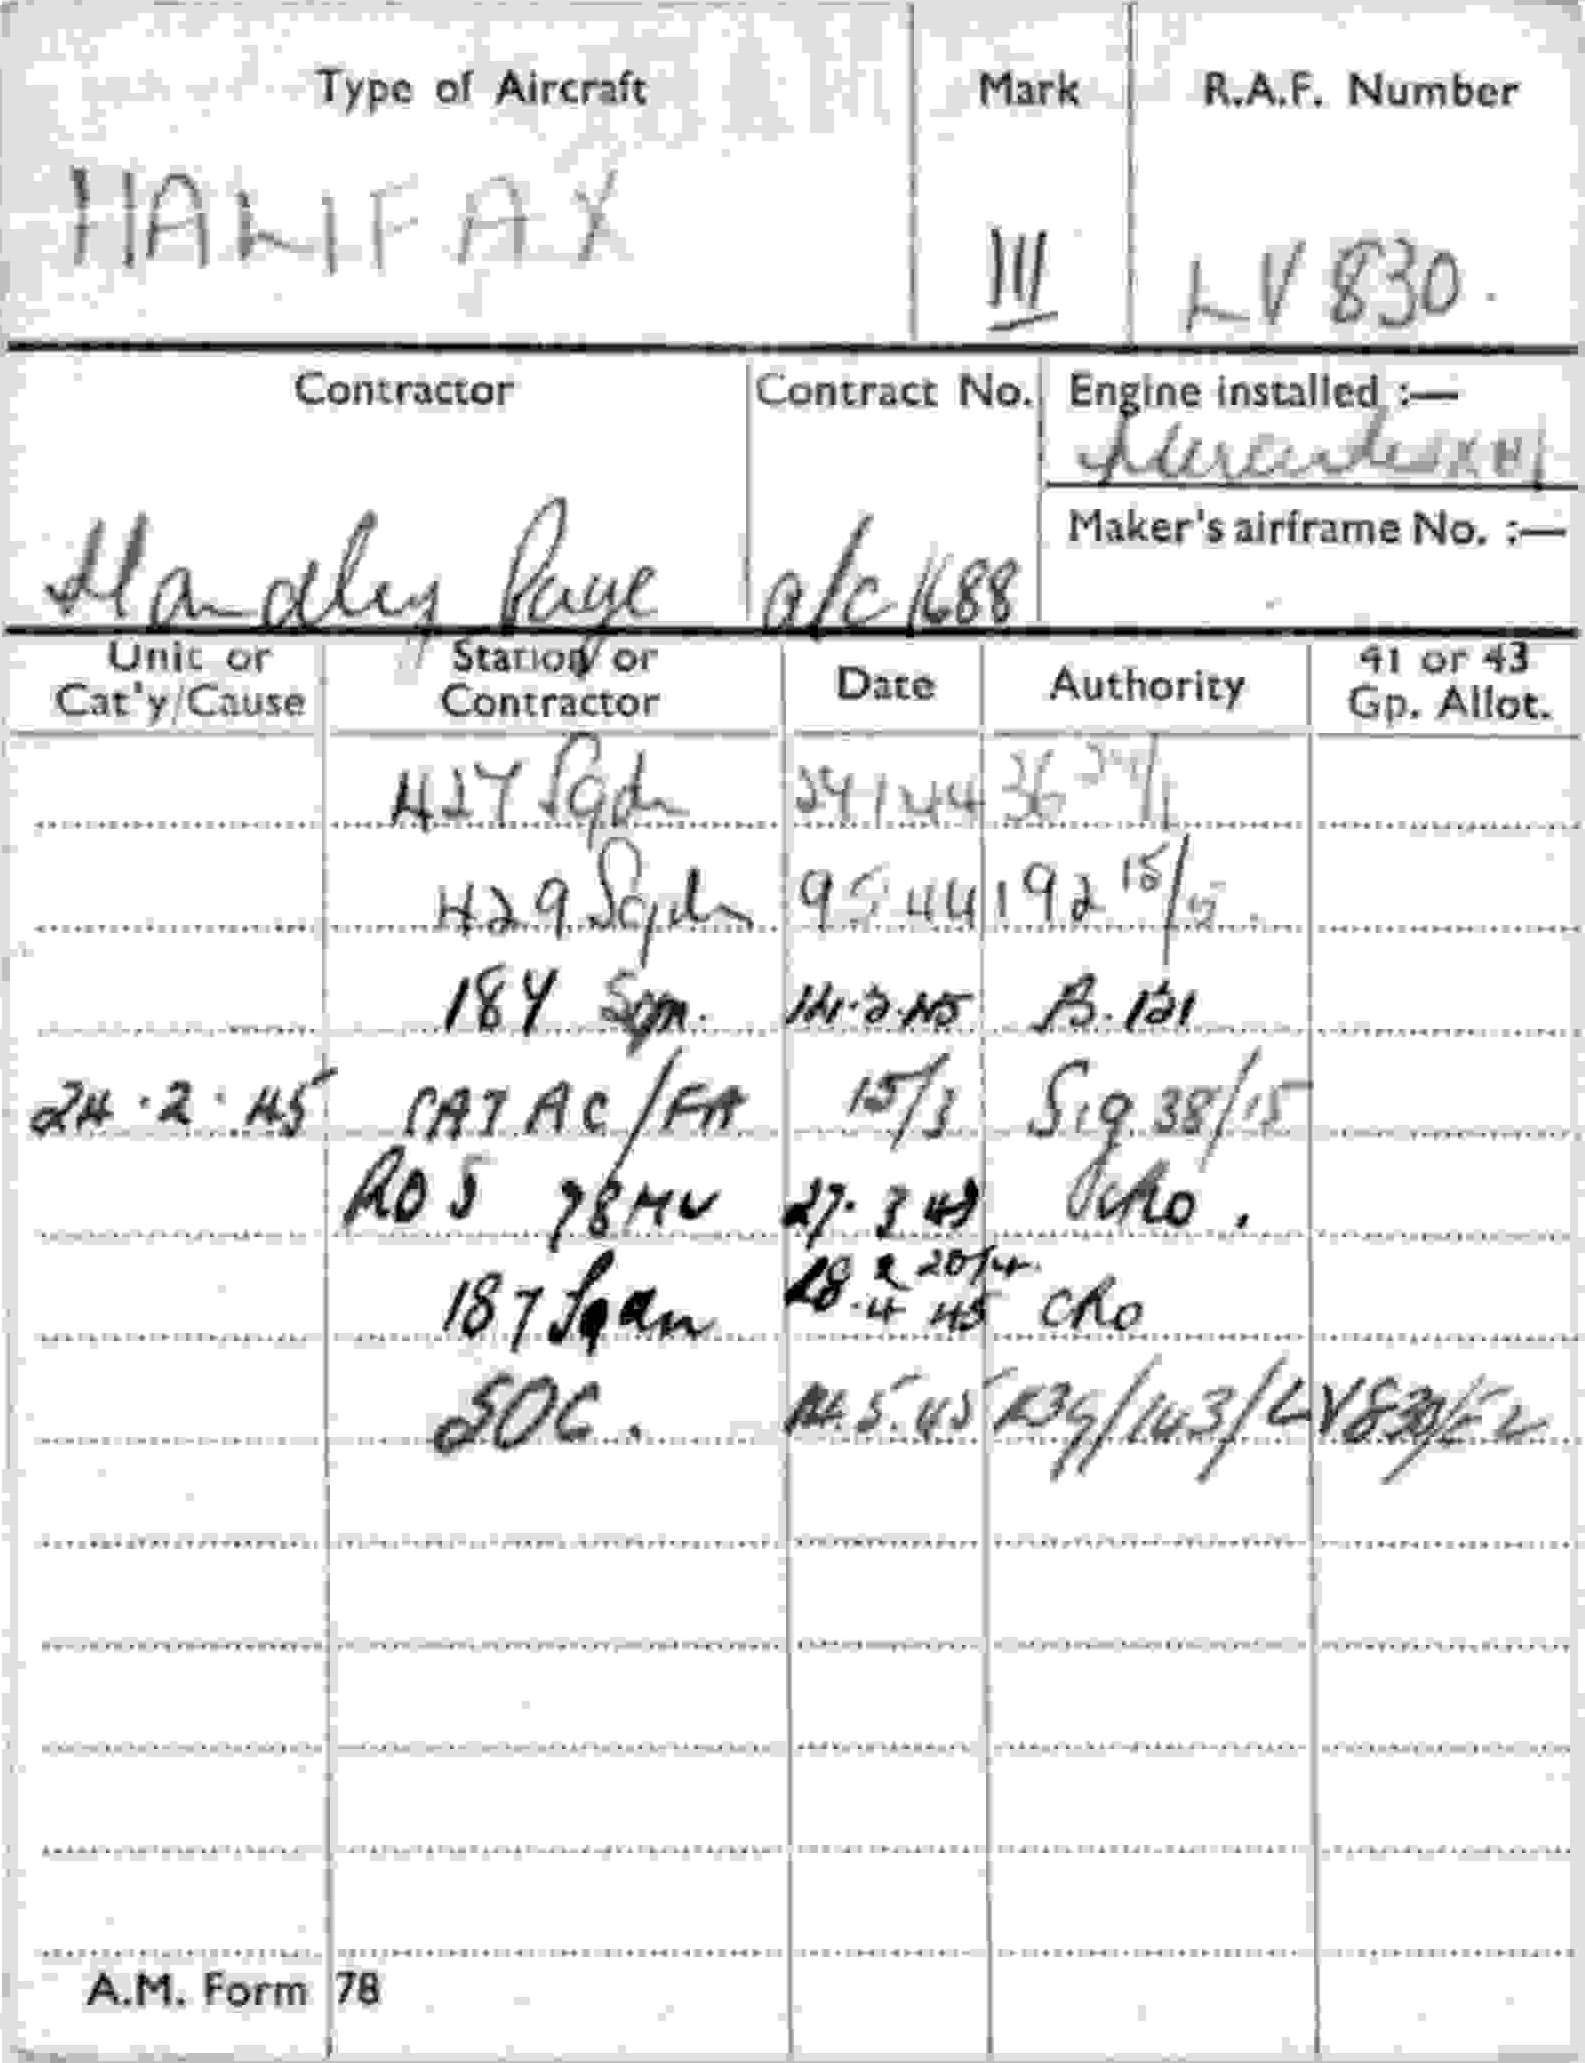 Type of Aircraft Mark R.A.F. Number
HALIFAX III LV 830.
Contractor Contract No. Engine installed :—
Maker's airframe No. :—
Handley Page a/c 1688
Unit or Cat'y/Cause Station or Contractor Date Authority 41 or 43 Gp. Allot.
427 Sqdn 29 1 44 36
429 Sqdn 9 5 44 192 15/5.
187 Sqn. 14.2.45 B.121
24.2.45 CAT AC/FA 15/3 Sig 38/15
ROS 78 MU 27.3.45 CRO.
187 Sqdn 28 4 45 CRO
SOC. 14.5.45 R39/143/LV830/E2
A.M. Form 78